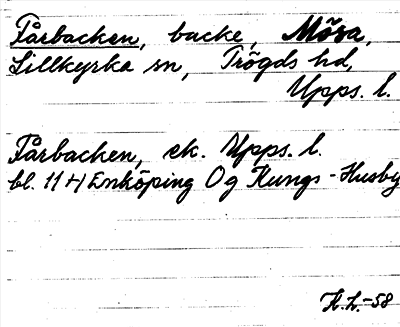 Fårbacken, backe, Mösa,
Lillkyrka sn, Trögds hd,
Upps. l.
Fårbacken, ek. Upps. l.
bl. 11 H Enköping Og Kungs-Husby
H.L.-58